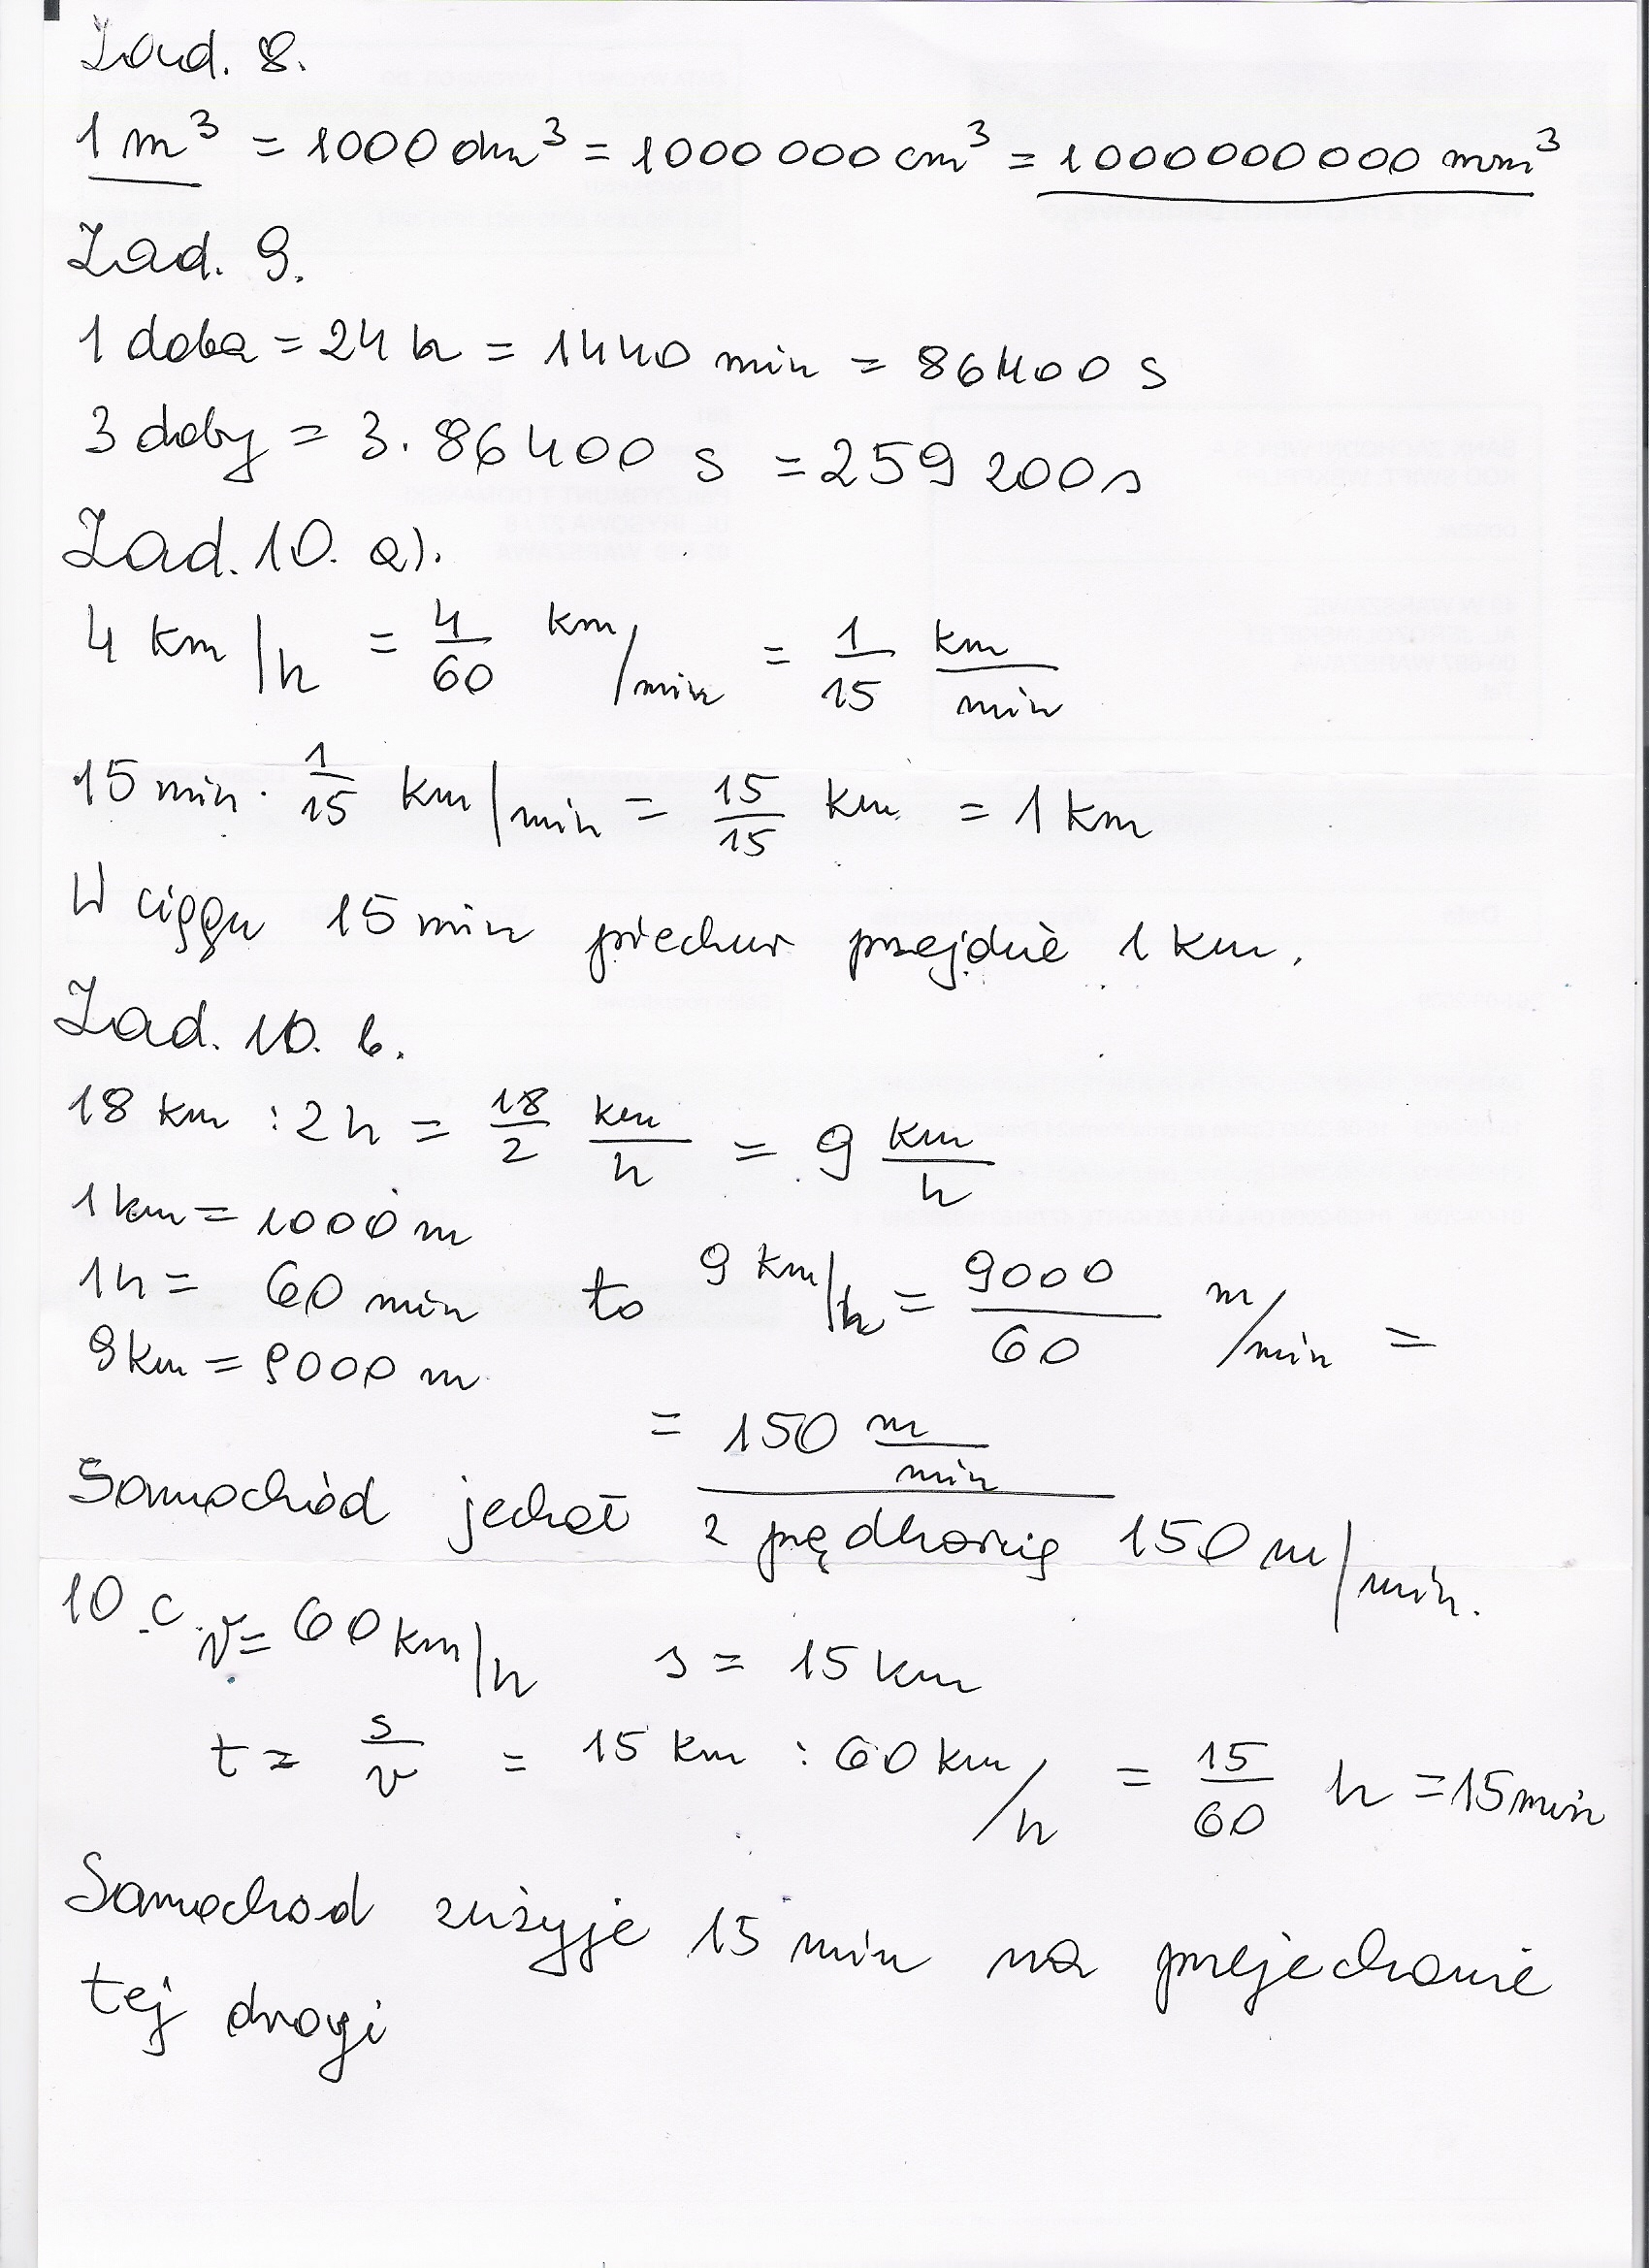 Zad. 8.
1 m³ = 1000 dm³ = 1000 000 cm³ = 1000000000 mm³
Zad. 9.
1 doba = 24 h = 1440 min = 86400 s
3 doby = 3 · 86400 s = 259 200 s
Zad. 10. a).
4 km/h = 4/60 km/min = 1/15 km/min
15 min · 1/15 km/min = 15/15 km = 1 km
W ciągu 15 min piechur przejdzie 1 km.
Zad. 10. b.
18 km : 2 h = 18/2 km/h = 9 km/h
1 km = 1000 m
1h = 60 min to 9 km/h = 9000/60 m/min =
9 km = 9000 m
= 150 m/min
Samochód jechał z prędkością 150 m/min.
10 c. v = 60 km/h s = 15 km
t = s/v = 15 km : 60 km/h = 15/60 h = 15 min
Samochod zużyje 15 min na przejechanie
tej drogi